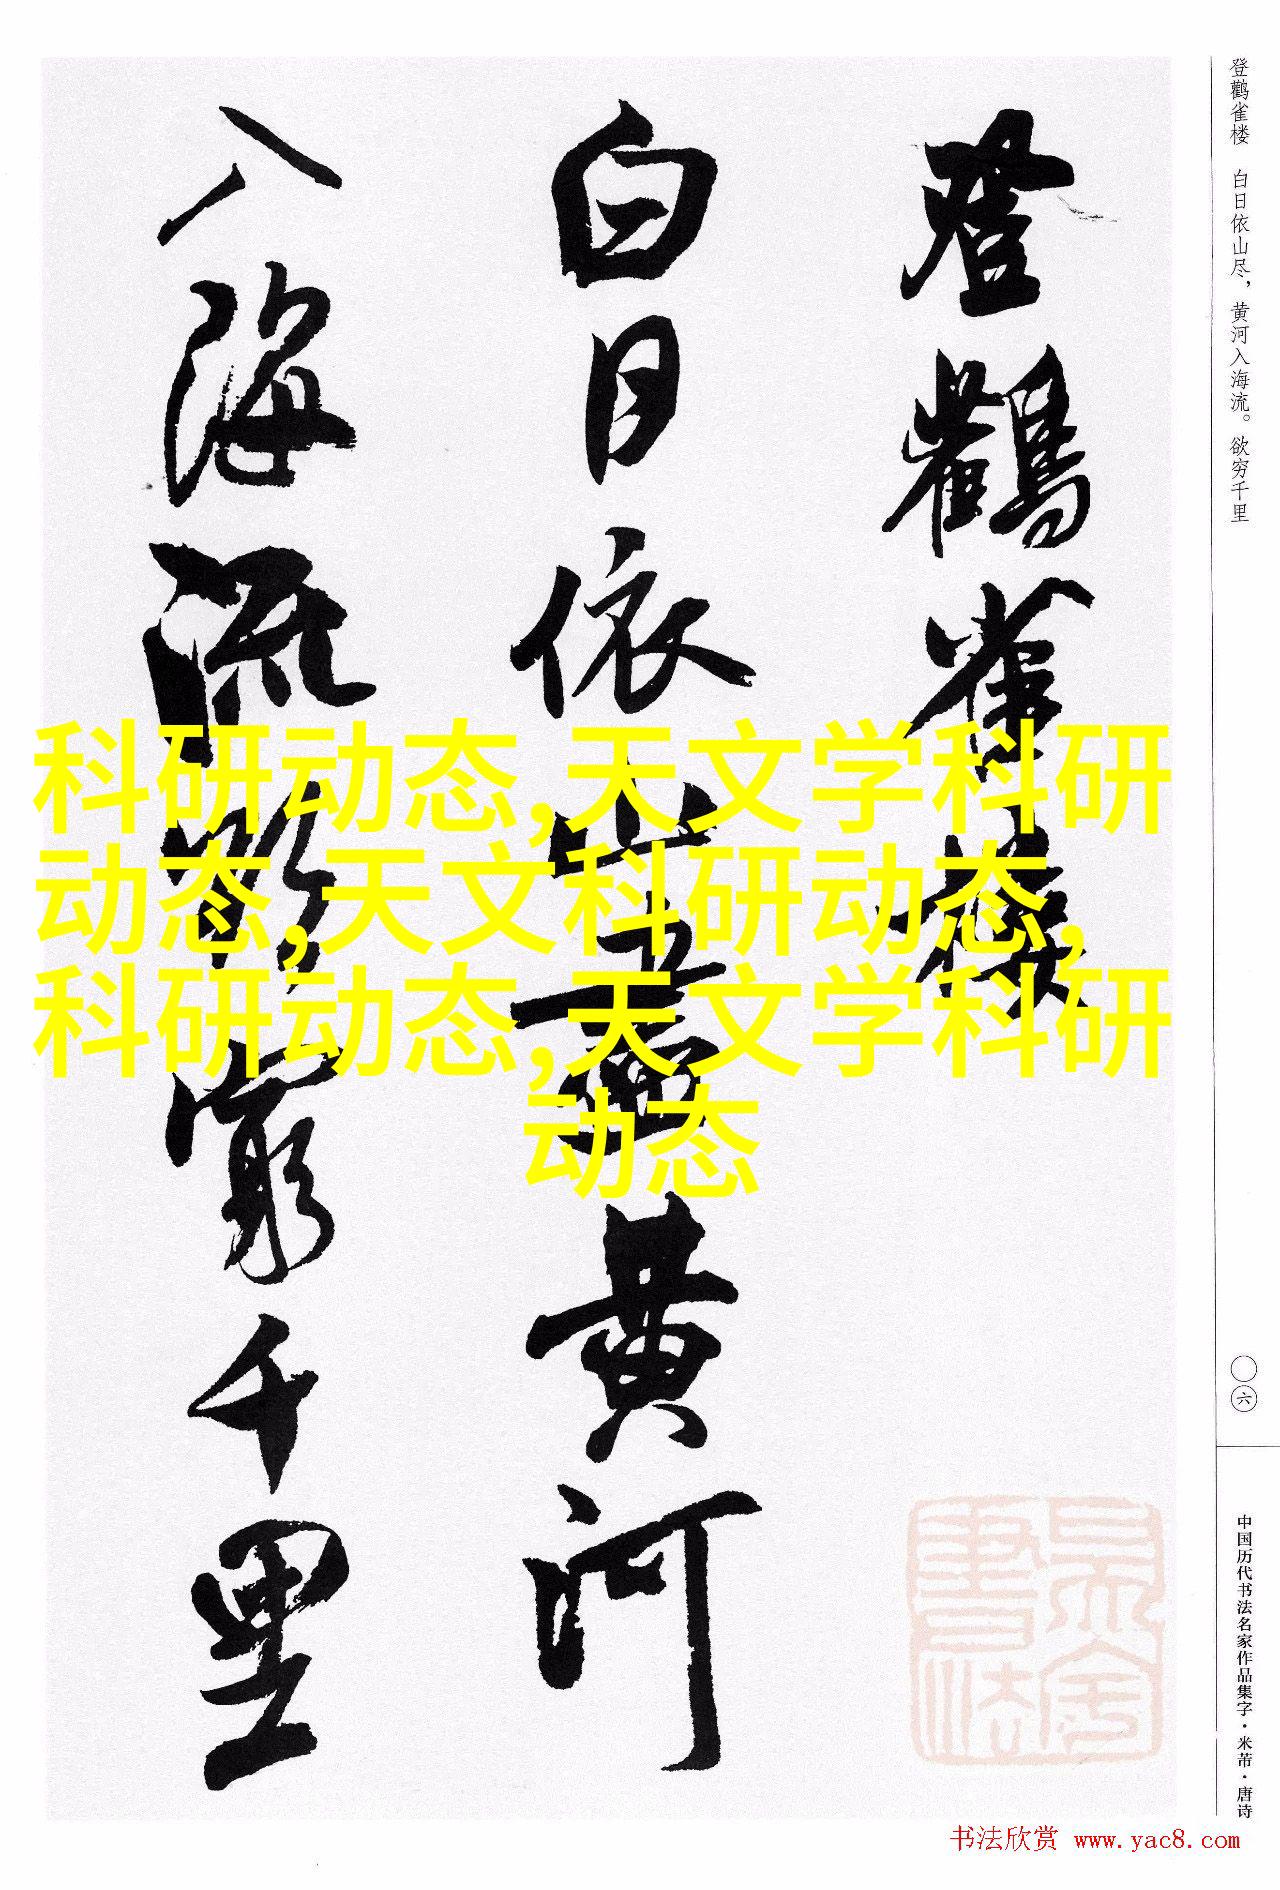 登鹳雀楼
白日依山尽黄河
入海流欲穷千里
登鹳雀楼 白日依山尽，黄河入海流。欲穷千里
科研动态,天文学科研
动态,天文科研动态,
科研动态,天文学科研
动态
〇六
中国历代书法名家作品集字·米芾·唐诗
书法欣赏 www.yac8.com